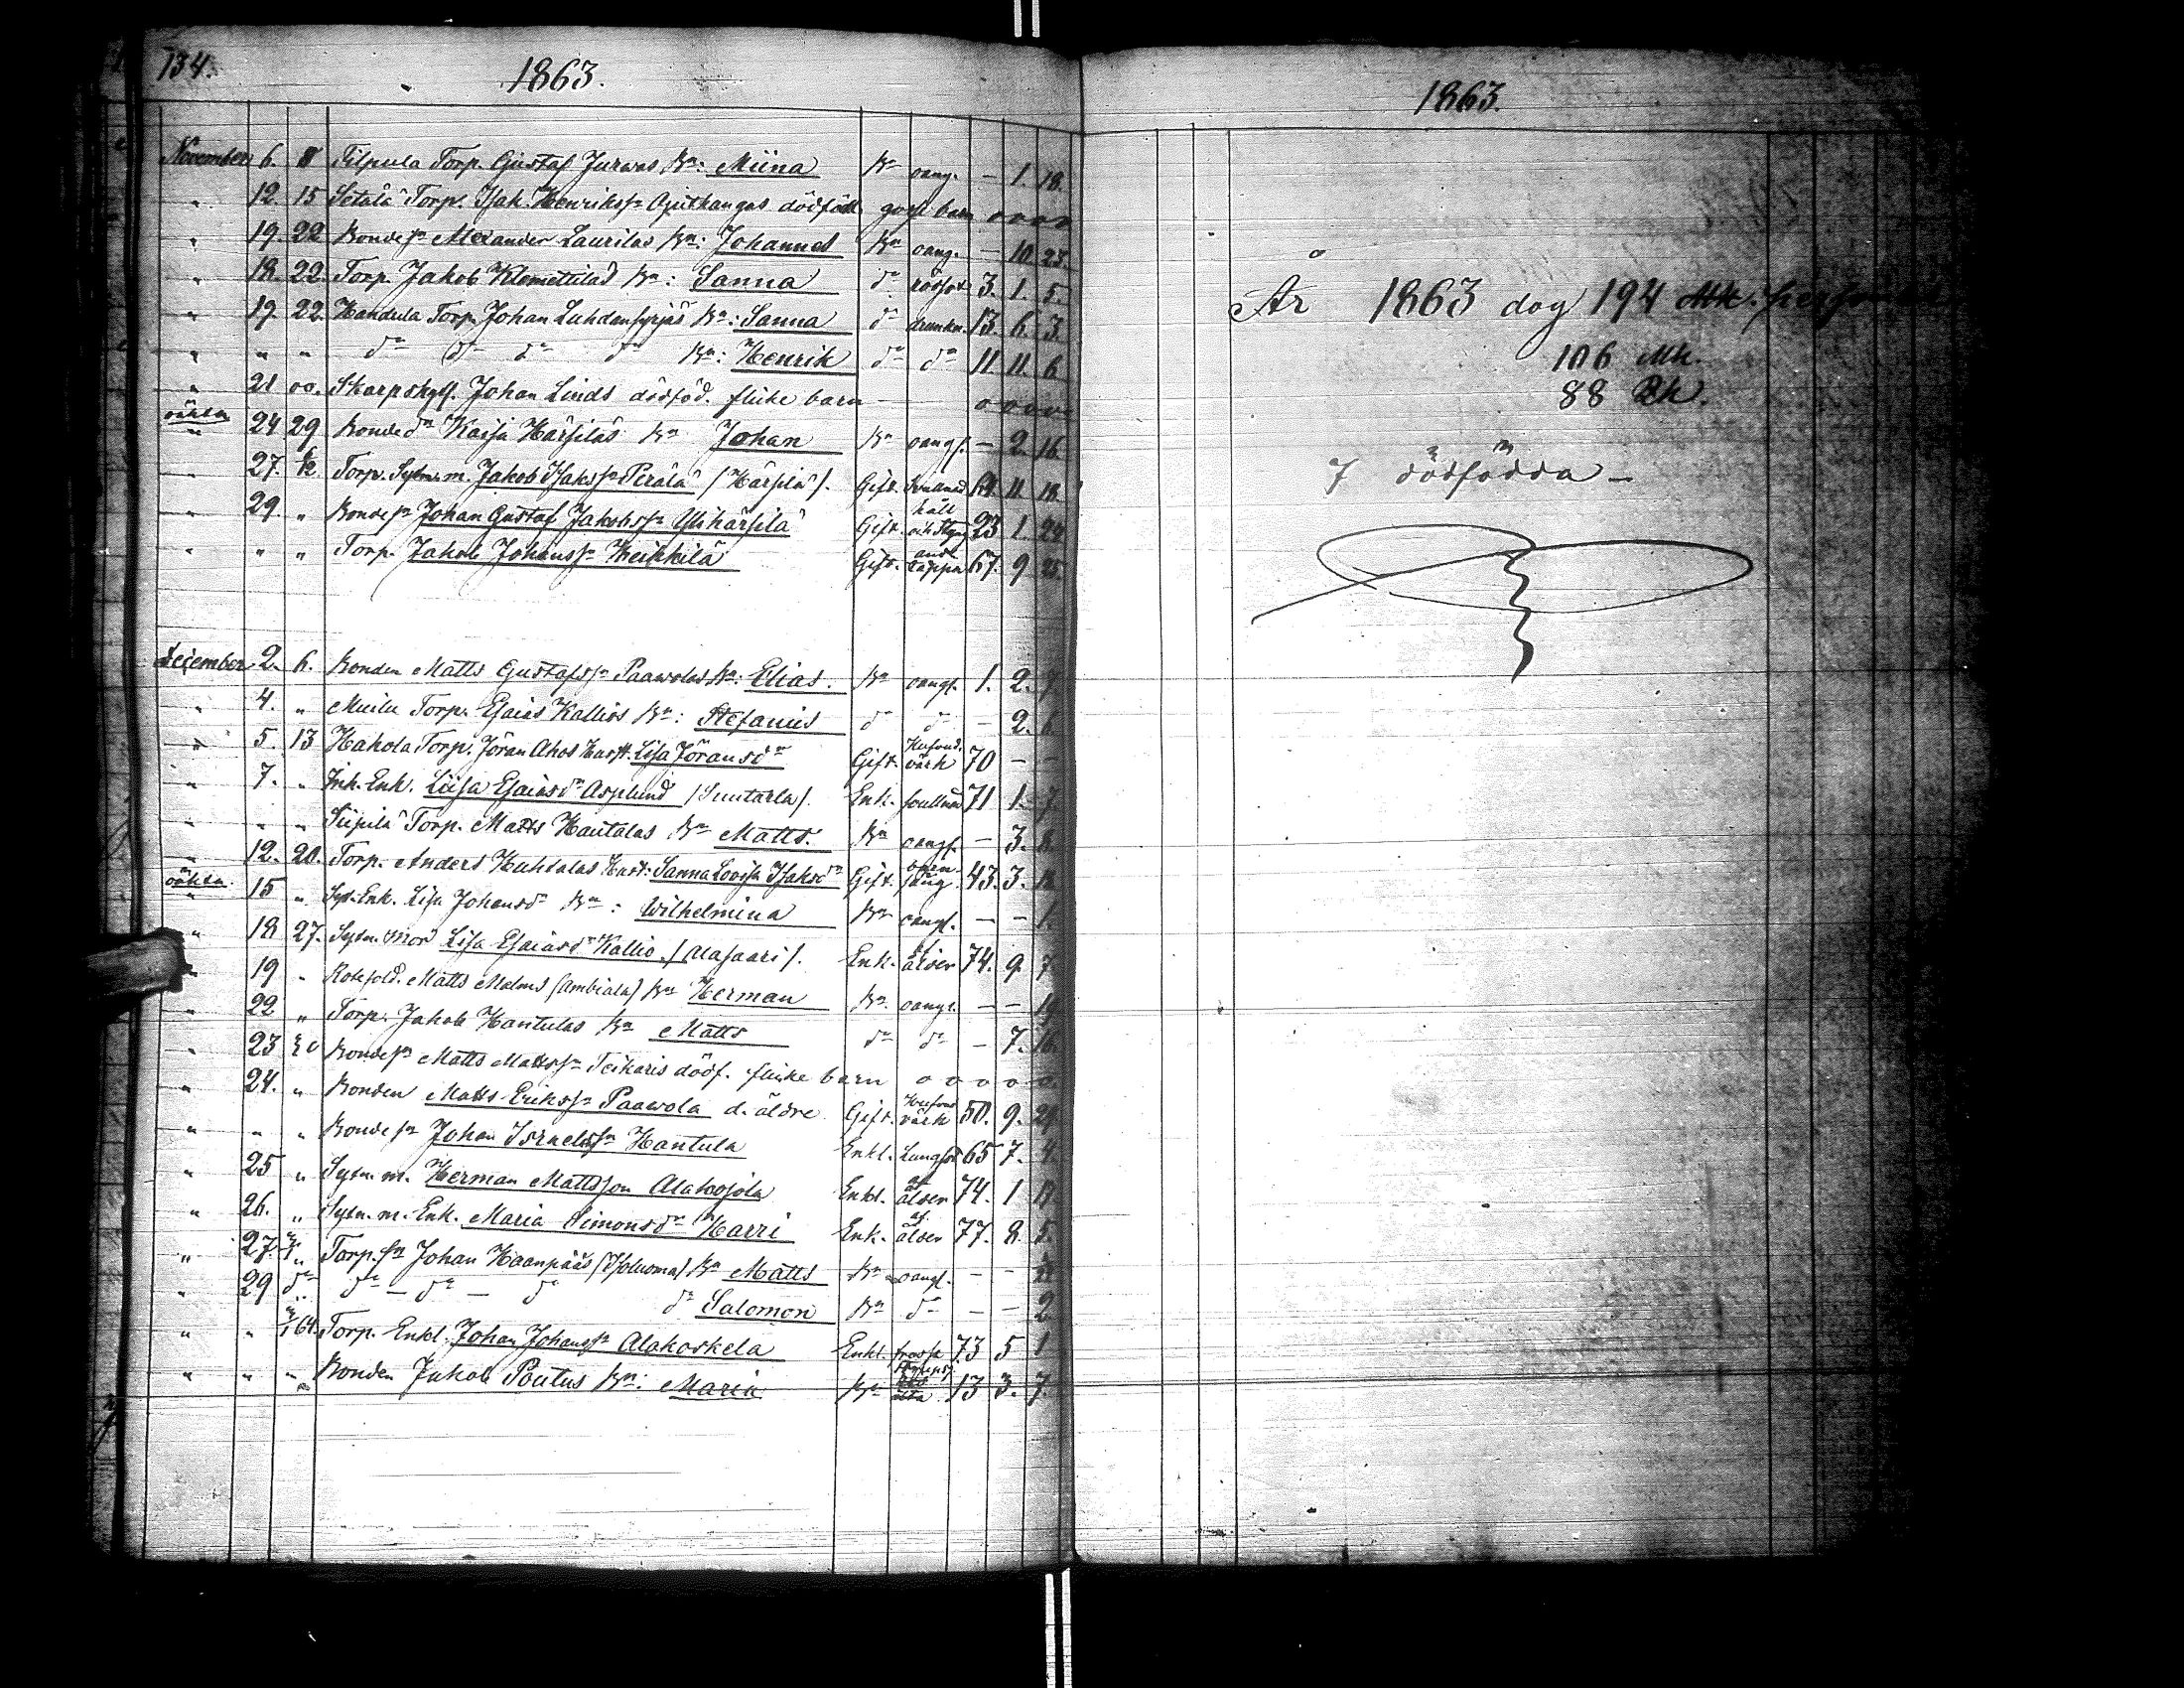 134.
1863.
November 6. 8 Tilpula Torp. Gustaf Jurwas Bn: Miina Bn oang. - 1. 18.
" 12. 15 Sétälä Torp. Isak Henrikss. dödfödt gosse barn o o o o
" 19. 22 Bondes. Alexander Laurilas Bn: Johannes Bn oang. - 10. 23.
" 18. 22. Torp. Jakob Klemettiläs Bn: Sanna dn rödsot 3. 1. 5.
" 19. 22. Handula Torp. Johan Bn: Sanna dn drunkn. 13. 6. 3.
" " " dn dn dn dn Bn: Henrik dn dn 11 11. 6.
" 21 oo. Skarpskytt. Johan Linds dödföd. flicke barn o o o o
oäkta
" 24 29 Bonded. Kaisa Härsiläs Bn Johan Bn oangf. - 2. 16.
" 27. Torp. Sytn. m. Jakob Isakss. Perälä (Härsilä). Gift. 64. 11 18.
" 29. " Bondes. Johan Gustaf Jakobss. Yli härsilä Gift. håll och styng 23 1. 24
" " " Torp. Jakob Johanss. Heikkilä Gift. and täppa 67. 9 25.
December 2. 6. Bonden Matts Gustafss. Paawolas Bn: Elias. Bn oangf. 1. 2. 7
" 4. " Muilu Torp. Esaias Kallios Bn: Stefanus d d - 2. 6.
" 5. 13 Hakola Torp. Jöran Ahos Hust. Lisa Jöransdr Gift. Hufvud. värk 70 - -
" 7. " Inh. Enk. Liisa Esaiasdr Asplund (Suutarla). Enk. 71 1. 7
" " " Siipilä Torp. Matts Hautalas Bn Matts. Bn oangf. - 3. 8.
" 12. 20. Torp. Anders Huhtalas Hust: Sanna Lovisa Isaksdr Gift. barn säng 43. 3. 18
oäkta
" 15 " Syt. Enk. Lisa Johansdr Bn: Wilhelmina Bn oangf. - - 1.
" 18 27. Sytn. mor Lisa Esaiasdr Kallio (Alasaari). Enk. af ålder 74. 9. 7
" 19 " Rotesold. Matts Malms (Ambiala) Bn Herman Bn oangf. - - 19
" 22 " Torp. Jakob Hantulas Bn Matts dn dn - 7. 16.
" 23 Bondes. Matts Mattss. Teikaris dödf. flicke barn o o o o o.
" 24. " Bonden Matts Erikss. Paawola d. äldre Gift. Hufvud värk 50. 9. 29
" " " Bondes. Johan Israelss. Hantula Enkl. Lungsot 65 7. 4.
" 25 " Sytn. m. Herman Mattsson Alakojola Enkl. af ålder 74. 1 17
" 26. " Sytn. m. Enk. Maria Simonsdr Harri Enk. af ålder 77. 8. 5.
" 27. " Torp. sn Johan Haanpääs (Isoluoma) Bn Matts Bn oangf. - -
" 29 dn dn - dn - d dn Salomon Bn dn - - 2
" " 64. Torp. Enkl. Johan Johanss. Alakoskela Enkl. frossa 73 5 1
" " " Bonden Jakob Pontus Bn: Maria Bn 13 3. 7.
1863.
År 1863 dog 194
106 Mk.
88 Qk.
7 dödfödda -